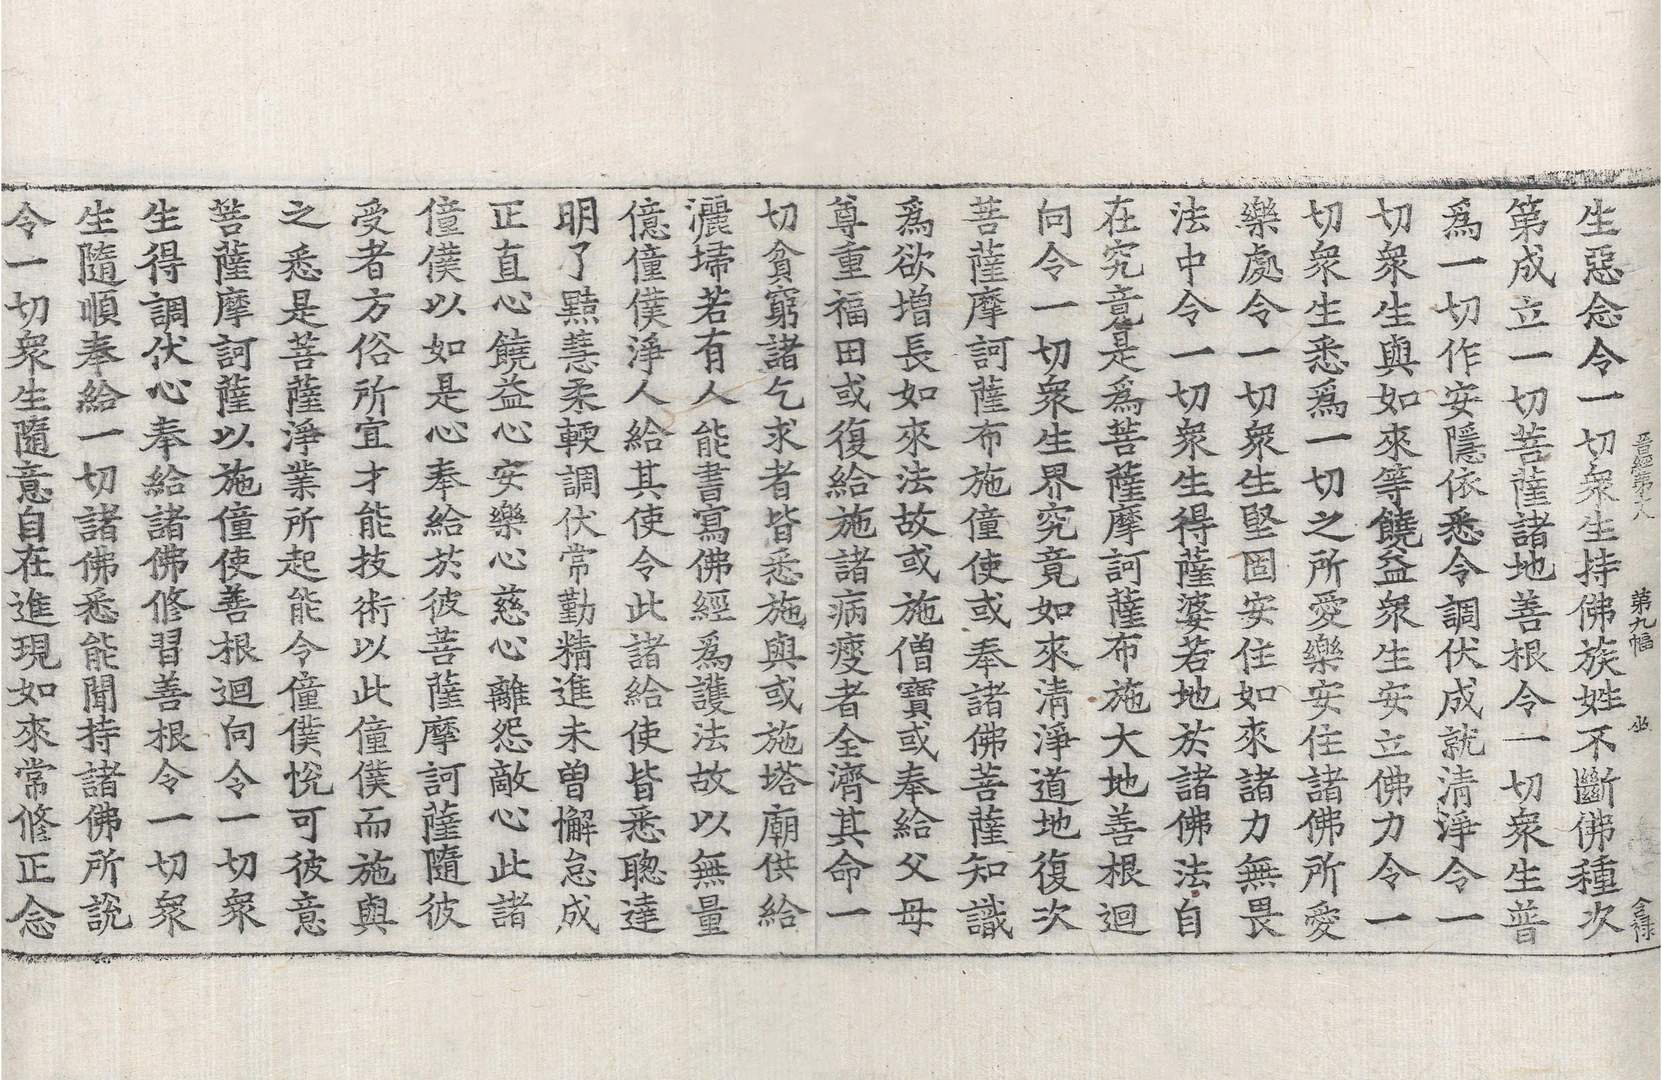 晋經第十八 第九幅 坐
生惡念令一切衆生持佛族姓不斷佛種次
第成立一切菩薩諸地善根令一切衆生普
爲一切作安隱依悉令調伏成就清淨令一
切衆生與如來等饒益衆生安立佛力令一
切衆生悉爲一切之所愛樂安住諸佛所愛
樂處令一切衆生堅固安住如來諸力無畏
法中令一切衆生得薩婆若地於諸佛法自
在究竟是爲菩薩摩訶薩布施大地善根迴
向令一切衆生界究竟如來清淨道地復次
菩薩摩訶薩布施僮使或奉諸佛菩薩知識
爲欲增長如來法故或施僧寶或奉給父母
尊重福田或復給施諸病瘦者全濟其命一
切貧窮諸乞求者皆悉施與或施塔廟供給
灑埽若有人能書寫佛經爲護法故以無量
億僮僕淨人給其使令此諸給使皆悉聰達
明了黠慧柔輭調伏常勤精進未曽懈怠成
正直心饒益心安樂心慈心離怨敵心此諸
僮僕以如是心奉給於彼菩薩摩訶薩隨彼
受者方俗所宜才能技術以此僮僕而施與
之悉是菩薩淨業所起能令僮僕悅可彼意
菩薩摩訶薩以施僮使善根迴向令一切衆
生得調伏心奉給諸佛修習善根令一切衆
生隨順奉給一切諸佛悉能聞持諸佛所說
令一切衆生隨意自在進現如來常修正念